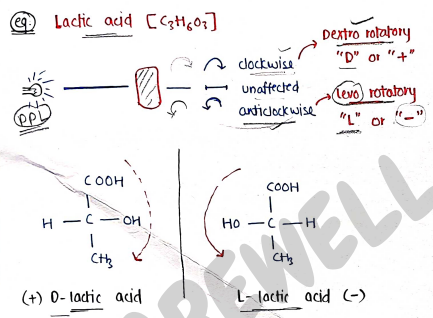 eg. Lactic acid [C3H6O3]
Dextro rotatory
"D" or "+"
clockwise
unaffected
anticlockwise
PPL
Levo rotatory
"L" or "-"
COOH
H - C - OH
CH3
COOH
HO - C - H
CH3
(+) D-lactic acid
L-lactic acid (-)
AREWELL